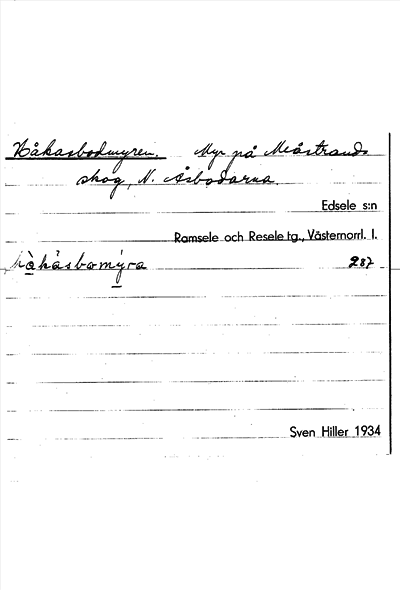 Håkasbodmyren. Myr på Meåstrands
skog, N. Åsbodarna.
Edsele s:n
Ramsele och Resele tg., Västernorrl. l.
hàkásbomýra 287
Sven Hiller 1934